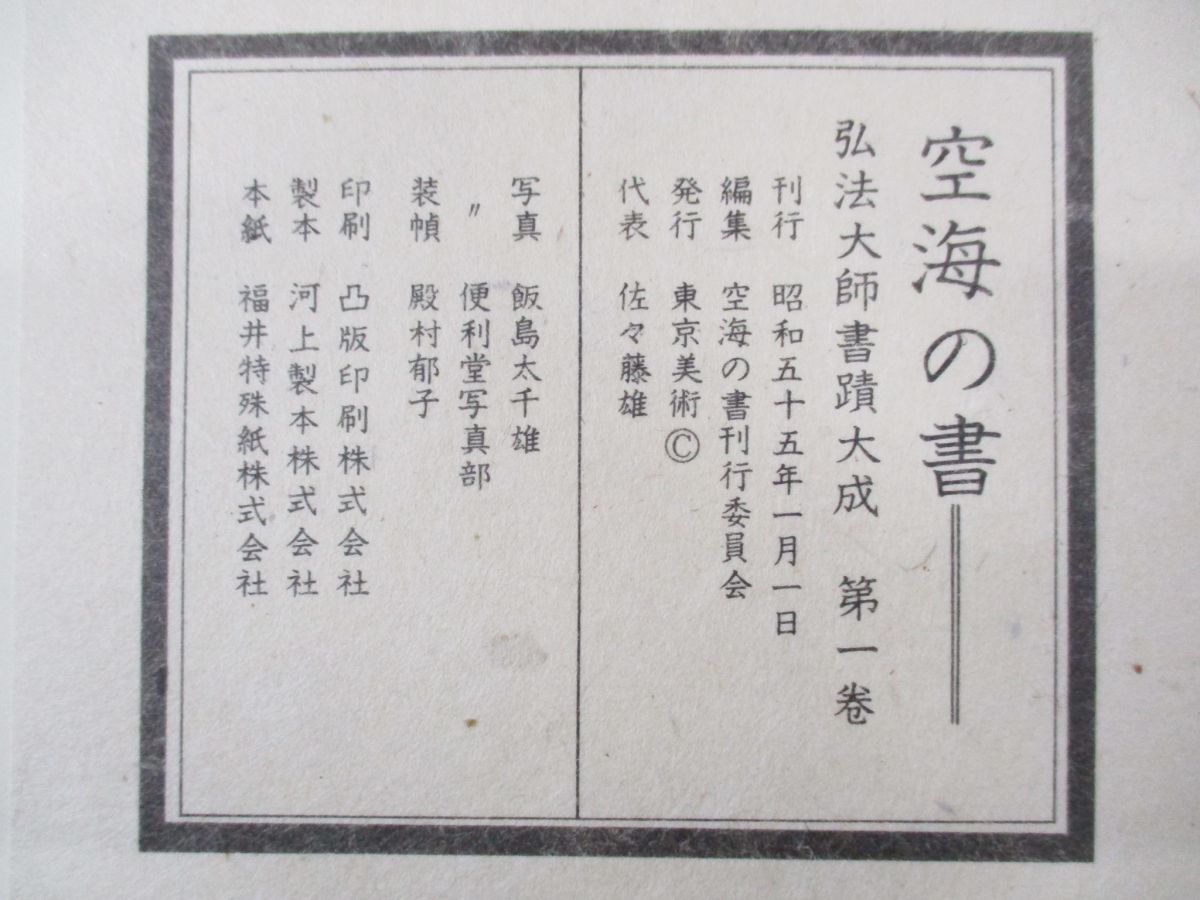 空海の書
弘法大師書蹟大成　第一巻
刊行　昭和五十五年一月一日
編集　空海の書刊行委員会
発行　東京美術©
代表　佐々藤雄
写真　飯島太千雄
〃　便利堂写真部
装幀　殿村郁子
印刷　凸版印刷株式会社
製本　河上製本株式会社
本紙　福井特殊紙株式会社